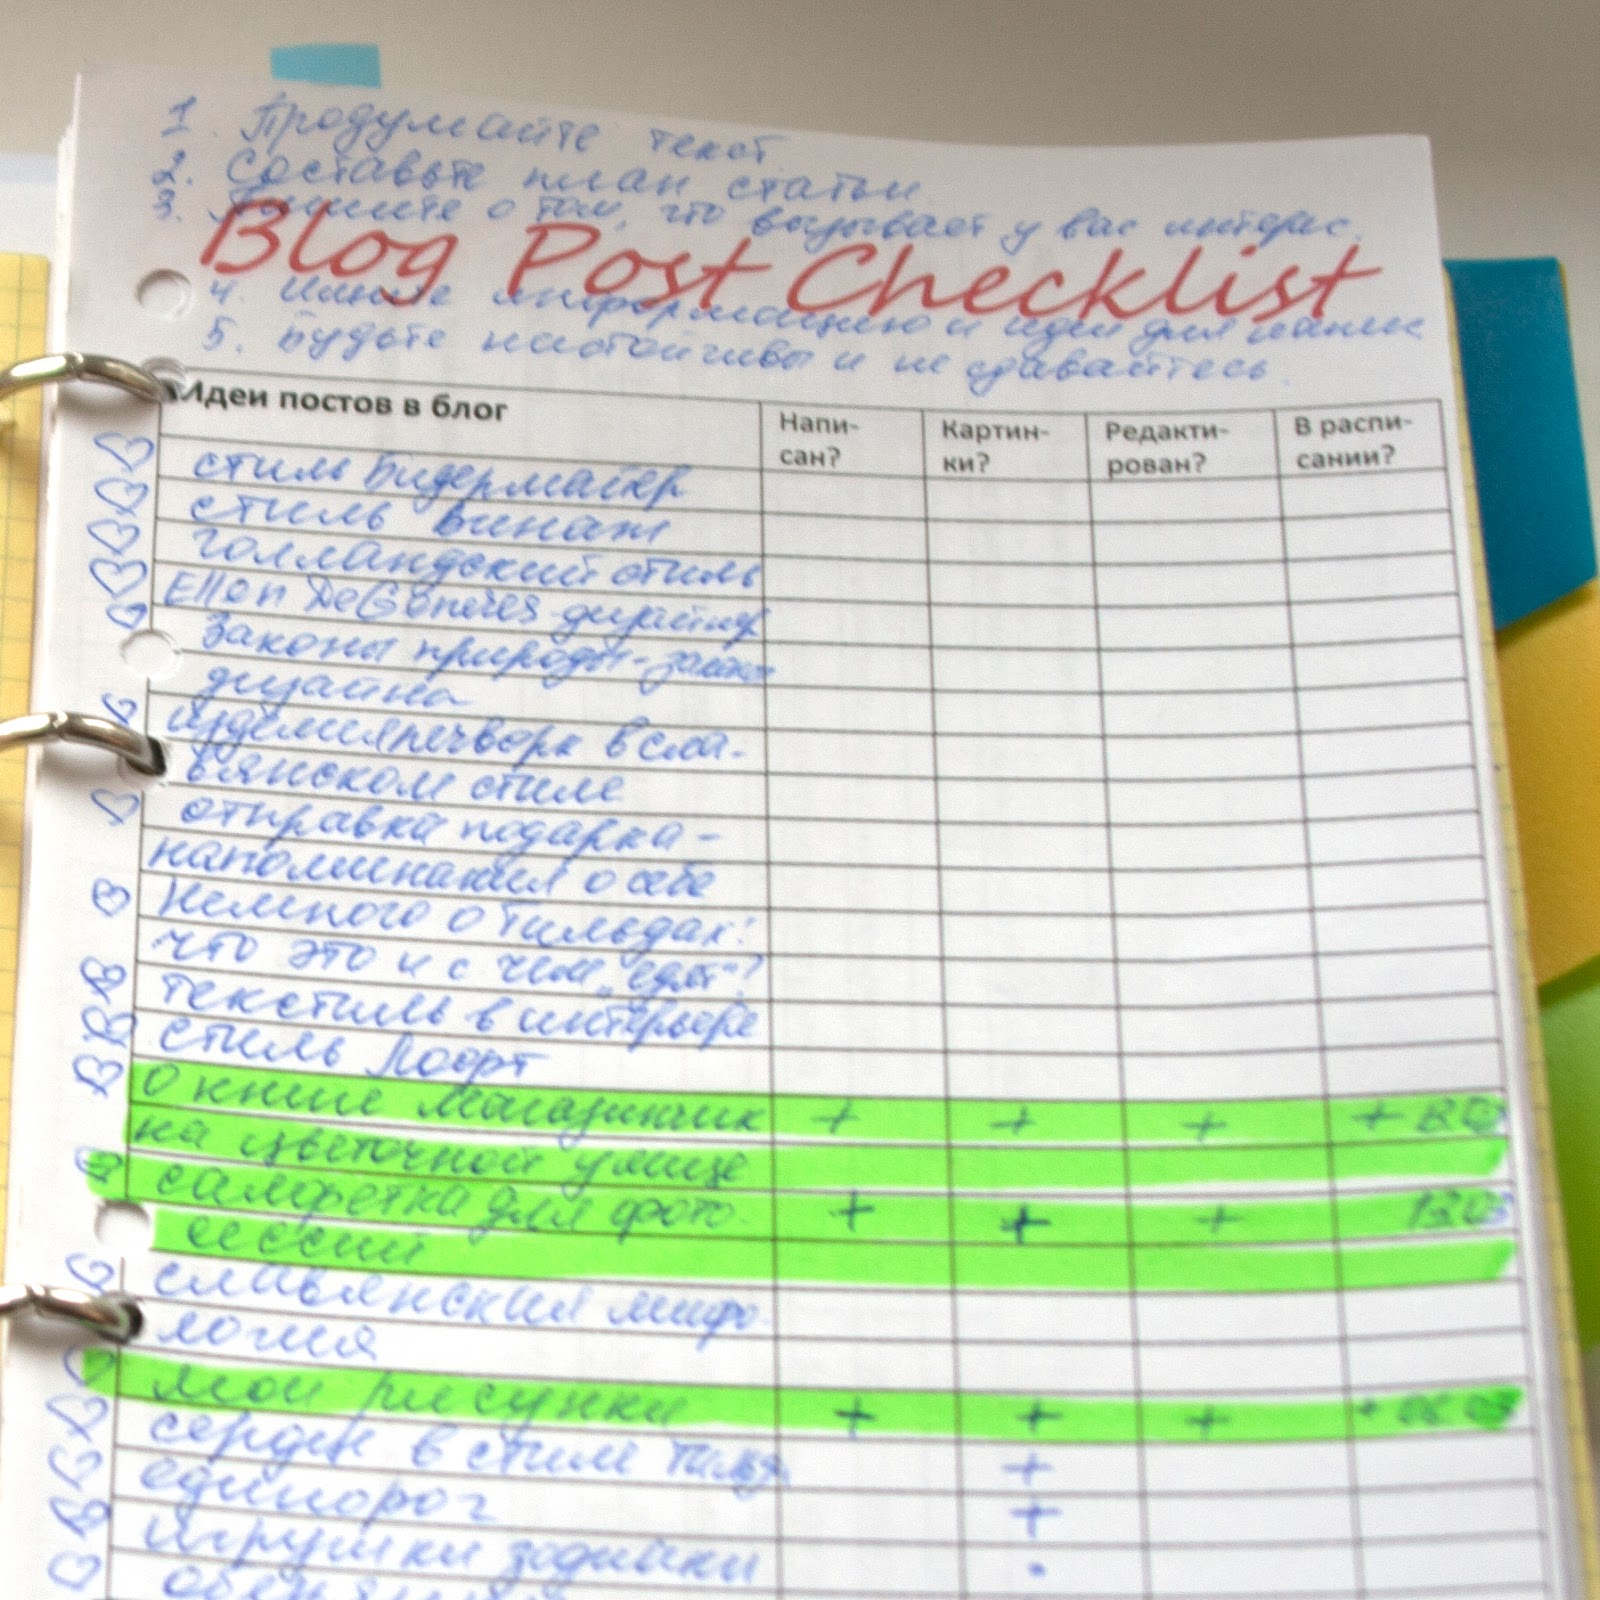 1. Продумайте текст
2. Составьте план статьи.
3. Пишите о том, что вызывает у вас интерес.
Blog Post Checklist
4. Ищите информацию и идеи для
5. Будьте настойчивы и не сдавайтесь.
Идеи постов в блог
Напи-
сан?
Картин-
ки?
Редакти-
рован?
В распи-
сании?
стиль Бидермайер
стиль Винтаж
голландский стиль
Ellen DeGeneres дизайнер
Законы природы -
дизайна
печворк в сла-
вянском стиле
отправка подарка -
напоминания о себе
Немного о Тильдах:
что это и с чем "едят"?
текстиль в интерьере
стиль Лофт
о книге Магазинчик + + + +
на цветочной улице
салфетка для фото- + + +
сессий
славянская мифо-
логия
мои рисунки + + + +
в стиле +
единорог +
игрушки зодиаки